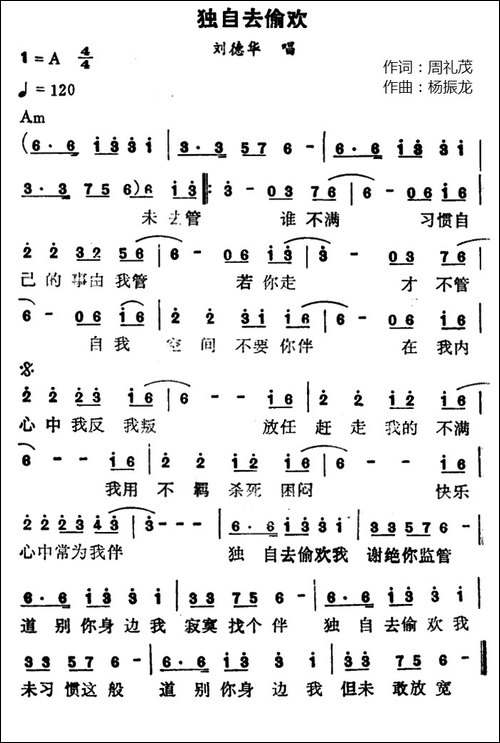 独自去偷欢
刘德华 唱
1=A 4/4
作词：周礼茂
♩=120
作曲：杨振龙
Am
(6·6 1331 | 3·3 576- | 6·6 1331 |
3·3 756)6 13 ‖: 3-037 6 | 6-0616 |
未去管 谁不满 习惯自
2 2 32 56 | 6-06 13 | 3-037 6 |
己的事由我管 若你走 才不管
6-06 16 | 2 2 31 16 | 6-0616 |
自我 空间不要你伴 在我内
𝄋
2 2 23 16 | 6--16 | 2 2 12 16 |
心中我反我叛 放任赶走我的不满
6--16 | 2 2 12 2 | 6--16 |
我用不羁杀死困闷 快乐
222343 | 3--- | 6·6 1331 | 33576- |
心中常为我伴 独自去偷欢我谢绝你监管
6·6 1331 | 33576- | 6·6 1331 |
道别你身边我寂寞找个伴 独自去偷欢我
33576- | 6·6 1331 | 33576- |
未习惯这般 道别你身边我但未敢放宽